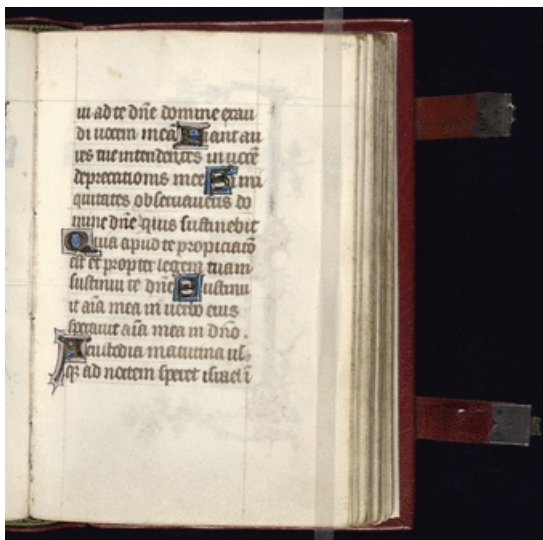 ui ad te dn̄e domine exau
di uocem meā Fiant au
res tue intendentes in uocē
deprecationis mee Si ini
quitates obseruaueris do
mine dn̄e quis sustinebit
Quia apud te propiciatō
est et propter legem tuam
sustinui te dn̄e Sustinu
it aīa mea in uerbo eius
sperauit aīa mea in dn̄o.
A custodia matutina us
qz ad noctem speret israel ī